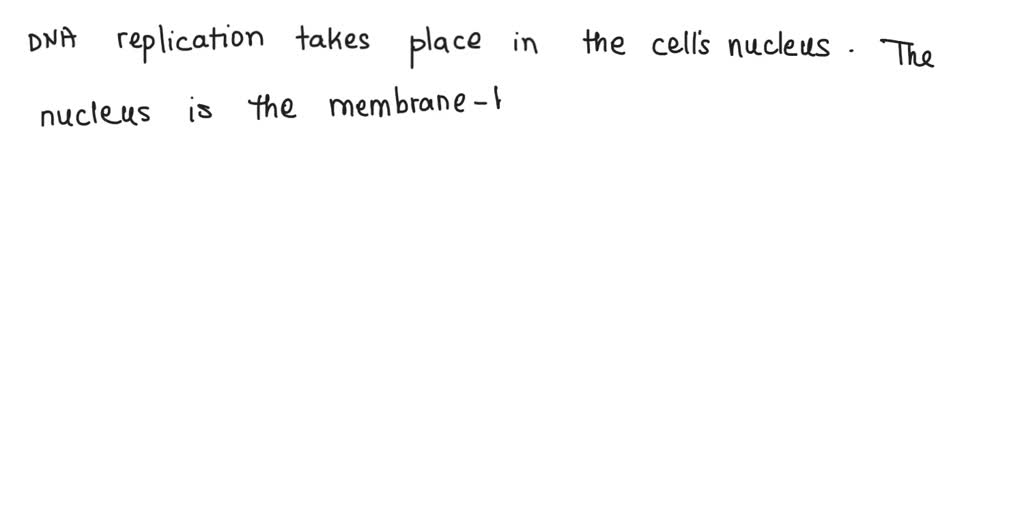 DNA replication takes place in the cell's nucleus. The
nucleus is the membrane-